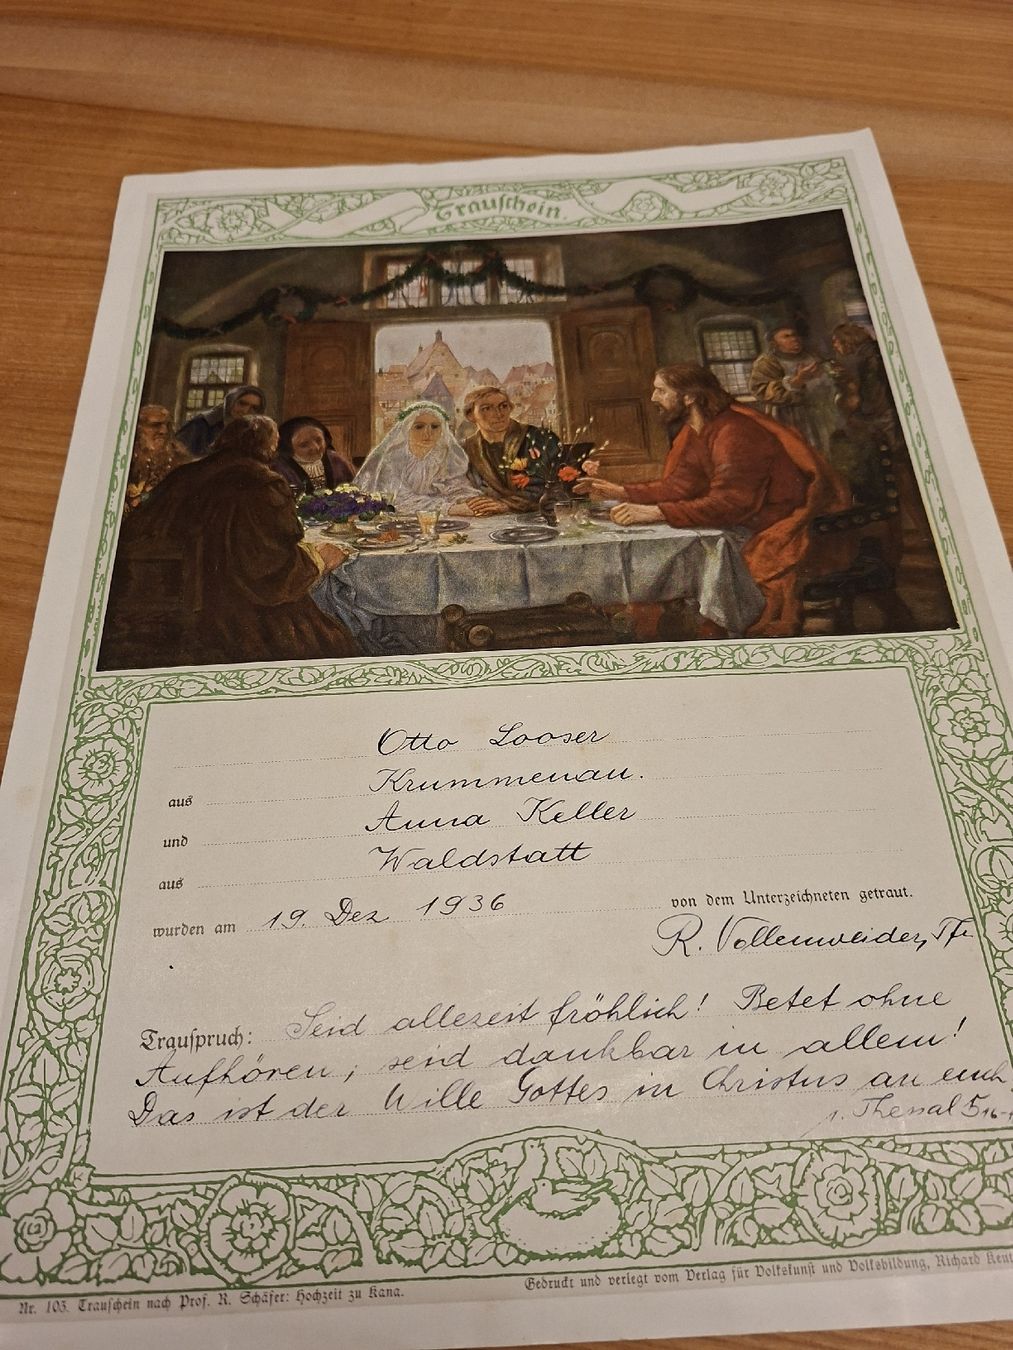 Trauschein.
Otto Looser
aus Krummenau.
und Anna Keller
aus Waldstatt
wurden am 19. Dez 1936 von dem Unterzeichneten getraut.
R. Vollenweider, Pfr.
Trauspruch: Seid allezeit fröhlich! Betet ohne
Aufhören, seid dankbar in allem!
Das ist der Wille Gottes in Christus an euch
1. Thessal 5 16-
Nr. 103. Trauschein nach Prof. R. Schäfer: Hochzeit zu Kana.
Gedruckt und verlegt vom Verlag für Volkskunst und Volksbildung, Richard Keut